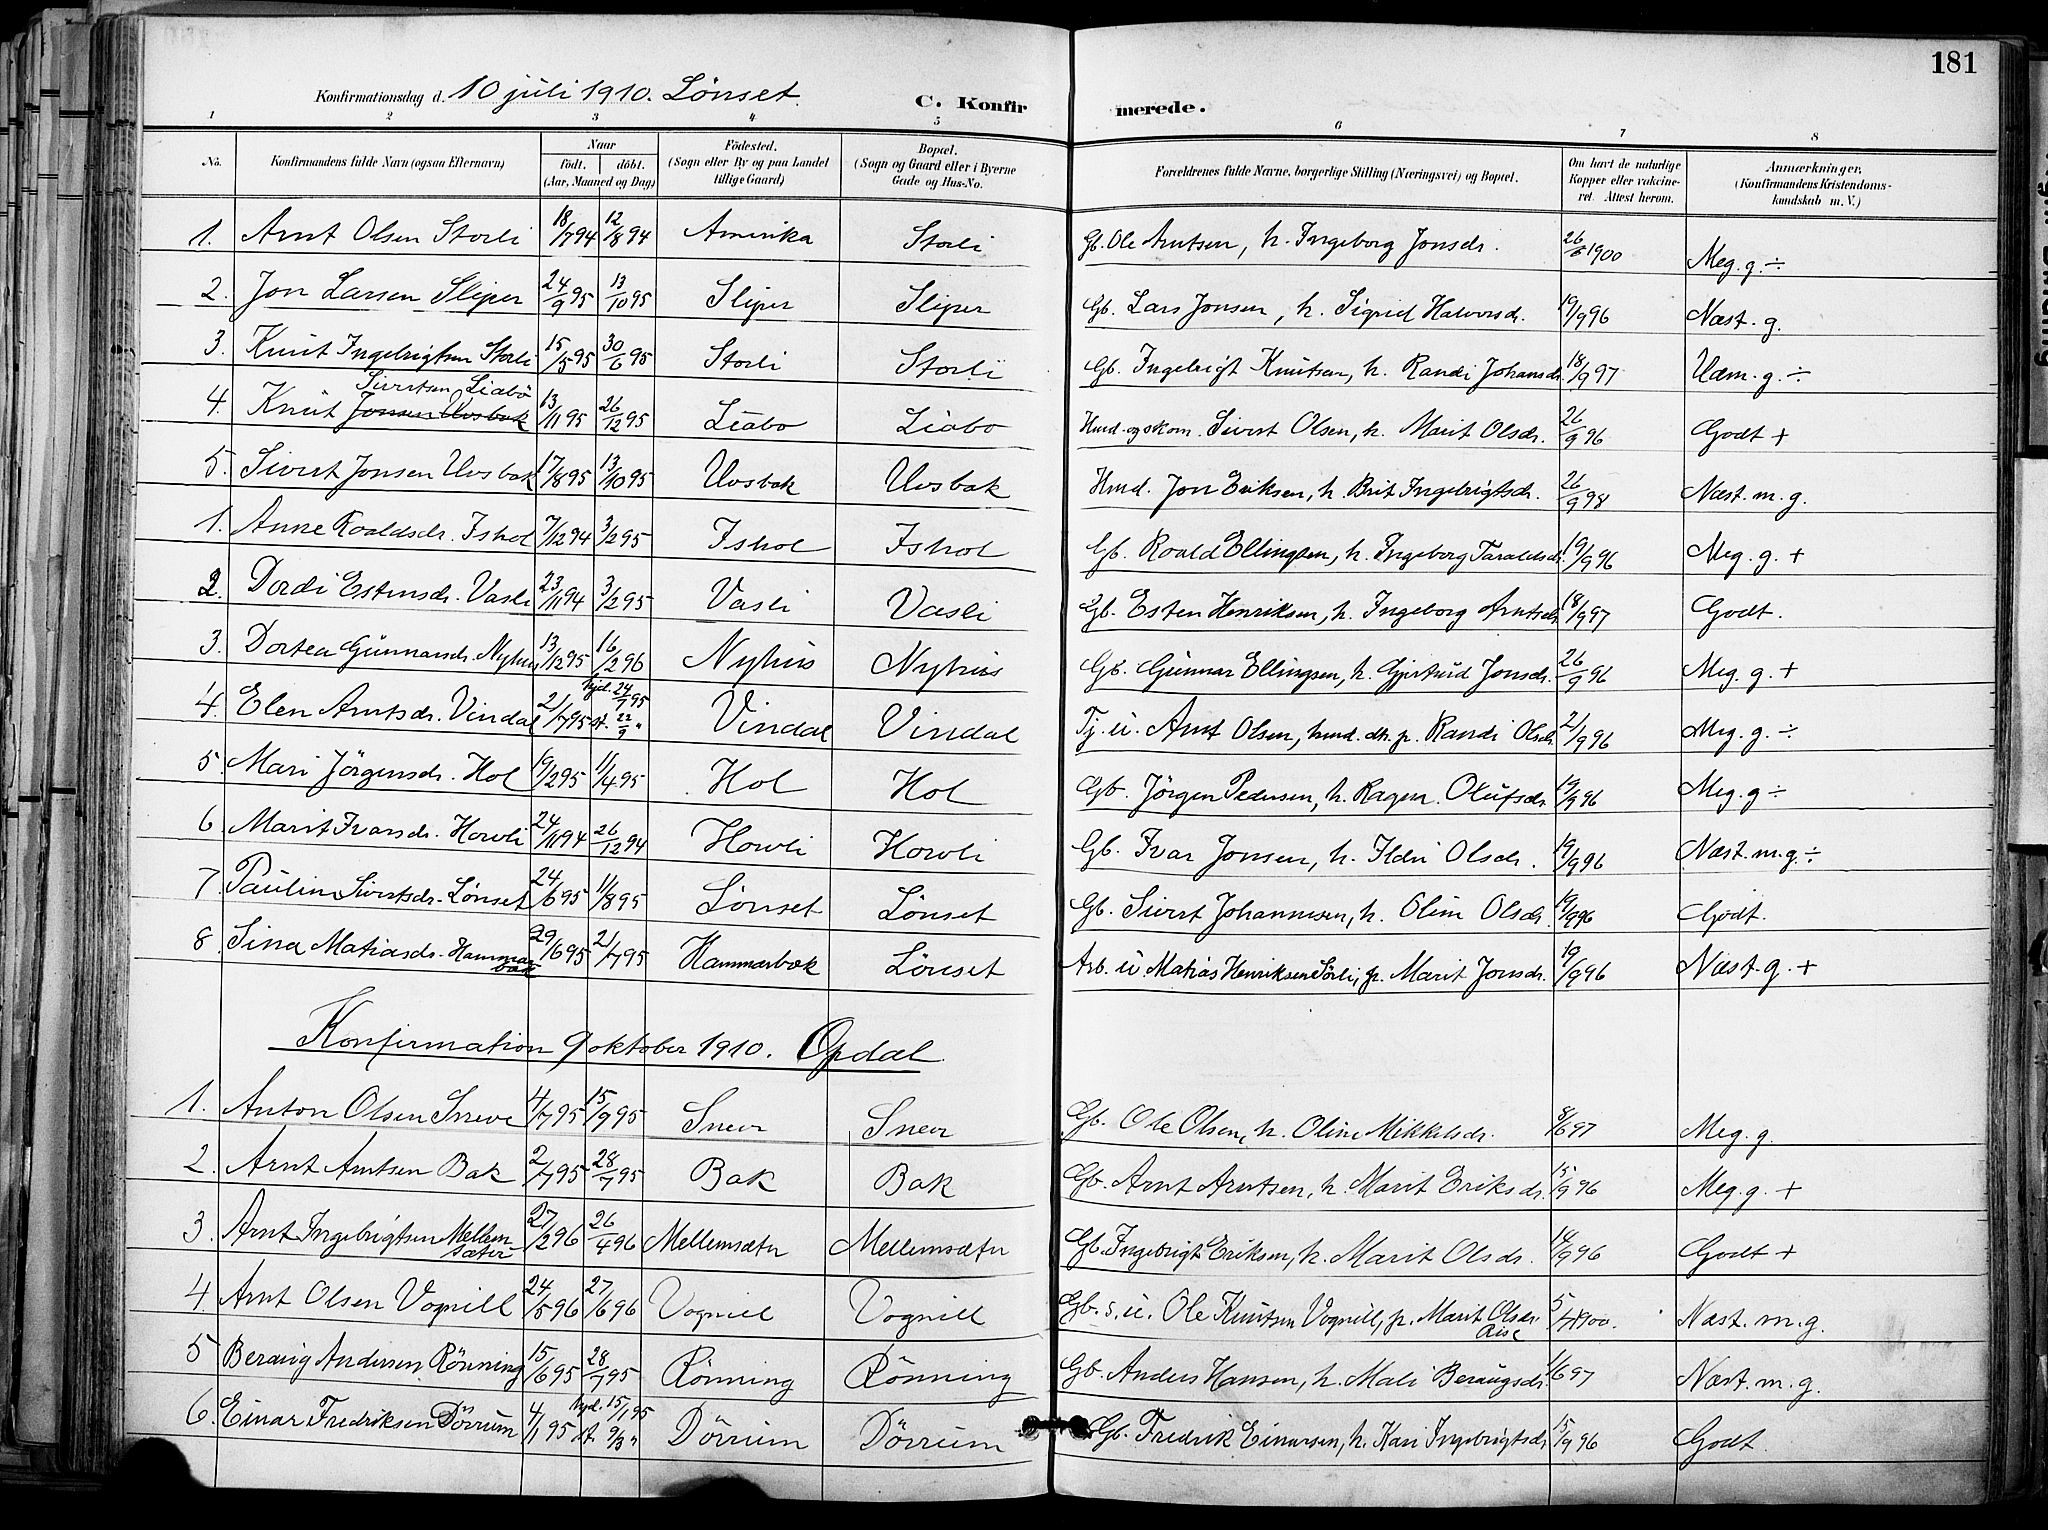 181
Konfirmationsdag d. 10 juli 1910. Lønset. C. Konfirmerede.
1 2 3 4 5 6 7 8
No. Konfirmandens fulde Navn (ogsaa Efternavn) Naar født. døbt. (Aar, Maaned og Dag) Födested. (Sogn eller By og paa Landet tillige Gaard) Bopæl. (Sogn og Gaard eller i Byerne Gade og Hus-No. Forældrenes fulde Navne, borgerlige Stilling (Næringsvei) og Bopæl. Om havt de naturlige Kopper eller vaccineret. Attest herom. Anmærkninger, (Konfirmandens Kristendomskundskab m. V.)
1. Arnt Olsen Storli 18/7 94 12/8 94 Amerika Storli Gb. Ole Arntsen, h. Ingeborg Jonsdr. 26/6 1900 Meg. g. ÷
2. Jon Larsen Sliper 24/9 95 13/10 95 Sliper Sliper Gb. Lars Jonsen, h. Sigrid Halvorsdr. 19/9 96 Næst. g.
3. Knut Ingebrigtsen Storli 15/5 95 30/6 95 Storli Storli Gb. Ingebrigt Knutsen, h. Randi Johansdr. 18/9 97 Udm. g. ÷
4. Knut Jonsen Uvsbak Sivertsen Liabø 13/11 95 26/12 95 Liabø Liabø Husmd. og skom. Sivert Olsen, h. Marit Olsdr. 26/9 96 Godt +
5. Sivert Jonsen Uvsbak 17/8 95 13/10 95 Uvsbak Uvsbak Husmd. Jon Eriksen, h. Brit Ingebrigtsdr. 26/9 98 Næst. m. g.
1. Anne Roaldsdr. Ishol 7/12 94 3/2 95 Ishol Ishol Gb. Roald Ellingsen, h. Ingeborg Taraldsdr. 19/9 96 Meg. g. +
2. Dordi Estensdr. Vasli 23/11 94 3/2 95 Vasli Vasli Gb. Esten Henriksen, h. Ingeborg Arntsdr. 18/9 97 Godt.
3. Dortea Gunnarsdr. Nyhus 13/12 95 16/2 96 Nyhus Nyhus Gb. Gunnar Ellingsen, h. Gjertrud Jonsdr. 26/9 96 Meg. g. +
4. Elen Arntsdr. Vindal 2/7 95 hjd. 24/7 95 st. 22/9 " Vindal Vindal Tj. u. Arnt Olsen, husmd. dtr. p. Randi Olsdr. 2/9 96 Meg. g. ÷
5. Mari Jörgensdr. Hol 19/2 95 11/4 95 Hol Hol Gb. Jörgen Pedersen, h. Ragen. Olufsdr. 19/9 96 Meg. g ÷
6. Marit Ivarsdr. Horvli 24/11 94 26/12 94 Horvli Horvli Gb. Ivar Jonsen, h. Ildri Olsdr. 19/9 96 Næst. m. g. ÷
7. Pauline Sivertsdr. Lønset 24/6 95 11/8 95 Lönset Lönset Gb. Sivert Johannesen, h. Oline Olsdr. 19/9 96 Godt.
8. Sina Matiasdr. Hammerbæk 29/6 95 21/7 95 Hammerbæk Lönset Arb. u Matias Henriksen Sörli, p. Marit Jonsdr. 19/9 96 Næst. g. +
Konfirmation 9 oktober 1910. Opdal.
1. Anton Olsen Sneve 4/7 95 15/9 95 Snevr Snevr Gb. Ole Olsen, h. Oline Mikkelsdr. 8/6 97 Meg. g.
2. Arnt Arntsen Bak 2/7 95 28/7 95 Bak Bak Gb. Arnt Arntsen, h. Marit Eriksdr. 15/9 96 Meg. g. +
3. Arnt Ingebrigtsen Mellemsæter 27/2 96 26/4 96 Mellemsæter Mellemsæter Gb. Ingebrigt Eriksen, h. Marit Olsdr. 14/9 96 Godt +
4. Arnt Olsen Vognill 24/5 96 27/6 96 Vognill Vognill Gb. s. u. Ole Knutsen Vognill, p. Marit Olsdr. Rise 5/4 1900. Næst. m. g.
5 Beraug Andersen Rönning 15/6 95 28/7 95 Rönning Rönning Gb. Anders Hansen, h. Mali Beraugsdr. 1/6 97 Næst. m. g.
6. Einar Fredriksen Dörrum 4/1 95 hjd. 15/1 95 st. 9/3 " Dörrum Dörrum Gb. Fredrik Einarsen, h. Kari Ingebrigtsdr. 15/9 96 Godt.